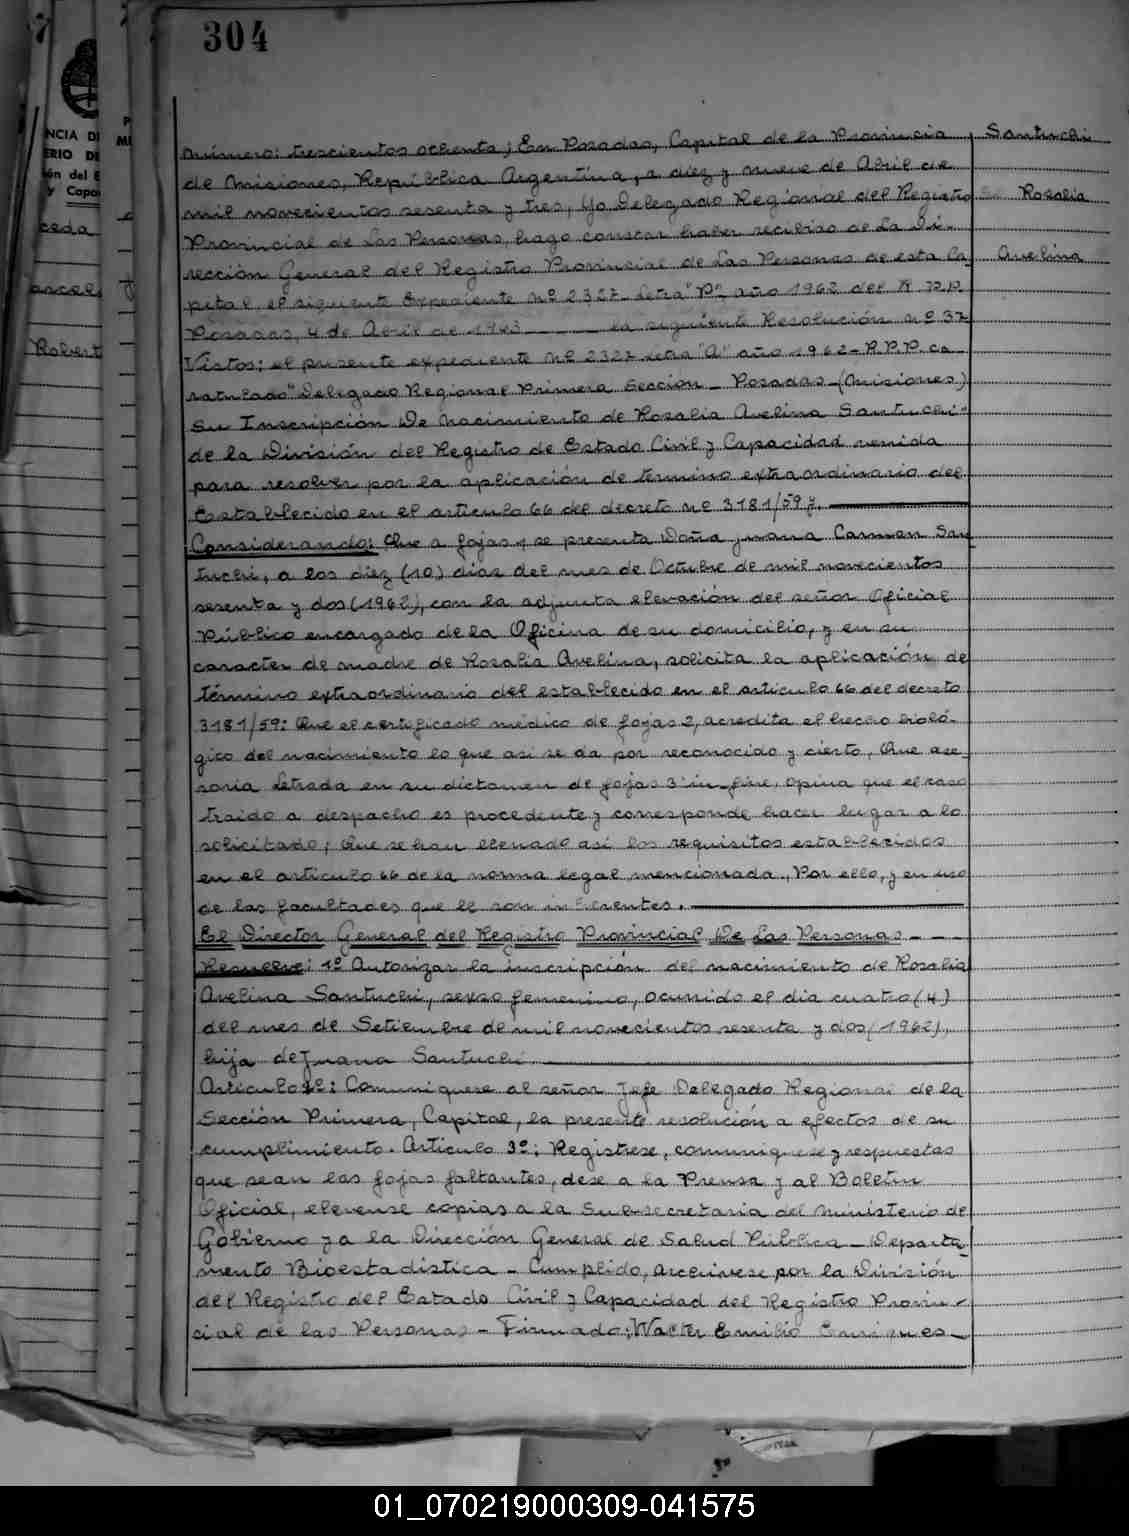 304
Número: trescientos ochenta; En Posadas, Capital de la Provincia
Santuchi
de Misiones, República Argentina, a diez y nueve de Abril de
mil novecientos sesenta y tres, Yo Delegado Regional del Registro
Rosalia
Provincial de Las Personas, hago constar haber recibido de La Di-
rección General del Registro Provincial de Las Personas de esta Ca-
Avelina
pital, el siguiente Expediente Nº 2327_ Letra "P" año 1962 del R. P.P.
Posadas, 4 de Abril de 1963 ____ la siguiente Resolución Nº 37
Vistos; el presente expediente Nº 2327 letra "A" año 1962 - R.P.P. ca-
ratulado "Delegado Regional Primera Sección _ Posadas _ (Misiones)
su Inscripción De Nacimiento de Rosalia Avelina Santuchi-
de la División del Registro de Estado Civil y Capacidad venida
para resolver por la aplicación de termino extraordinario del
Establecido en el articulo 66 del decreto Nº 3181/59 y.
Considerando: Que a fojas y se presenta Doña Juana Carmen San-
tuchi, a los diez (10) dias del mes de Octubre de mil novecientos
sesenta y dos (1962), con la adjunta elevación del señor Oficial
Público encargado de la Oficina de su domicilio, y en su
caracter de madre de Rosalia Avelina, solicita la aplicación de
término extraordinario del establecido en el articulo 66 del decreto
3181/59: Que el certificado médico de fojas 2, acredita el hecho bioló-
gico del nacimiento lo que asi se da por reconocido y cierto, Que ase-
soria Letrada en su dictamen de fojas 3 in-fine, opina que el caso
traido a despacho es procedente y corresponde hacer lugar a lo
solicitado; Que se han llenado asi los requisitos establecidos
en el articulo 66 de la norma legal mencionada., Por ello, y en uso
de las facultades que le son inherentes.
El Director General del Registro Provincial De Las Personas - - -
Resuelve: 1º Autorizar la inscripción del nacimiento de Rosalia
Avelina Santuchi, sexo femenino, ocurrido el dia cuatro (4)
del mes de Setiembre de mil novecientos sesenta y dos (1962),
hija de Juana Santuchi
Articulo 2º: Comuniquese al señor Jefe Delegado Regional de la
Sección Primera, Capital, la presente resolución a efectos de su
cumplimiento. Articulo 3º; Registrese, comuniquese y respuestas
que sean las fojas faltantes, dese a la Prensa y al Boletin
Oficial, elevense copias a la Sub-secretaria del Ministerio de
Gobierno y a la Dirección General de Salud Pública _ Departa-
mento Bioestadistica - Cumplido, archivese por la División
del Registro del Estado Civil y Capacidad del Registro Provin-
cial de las Personas - Firmado; Walter Emilio Enriques_
01_070219000309-041575